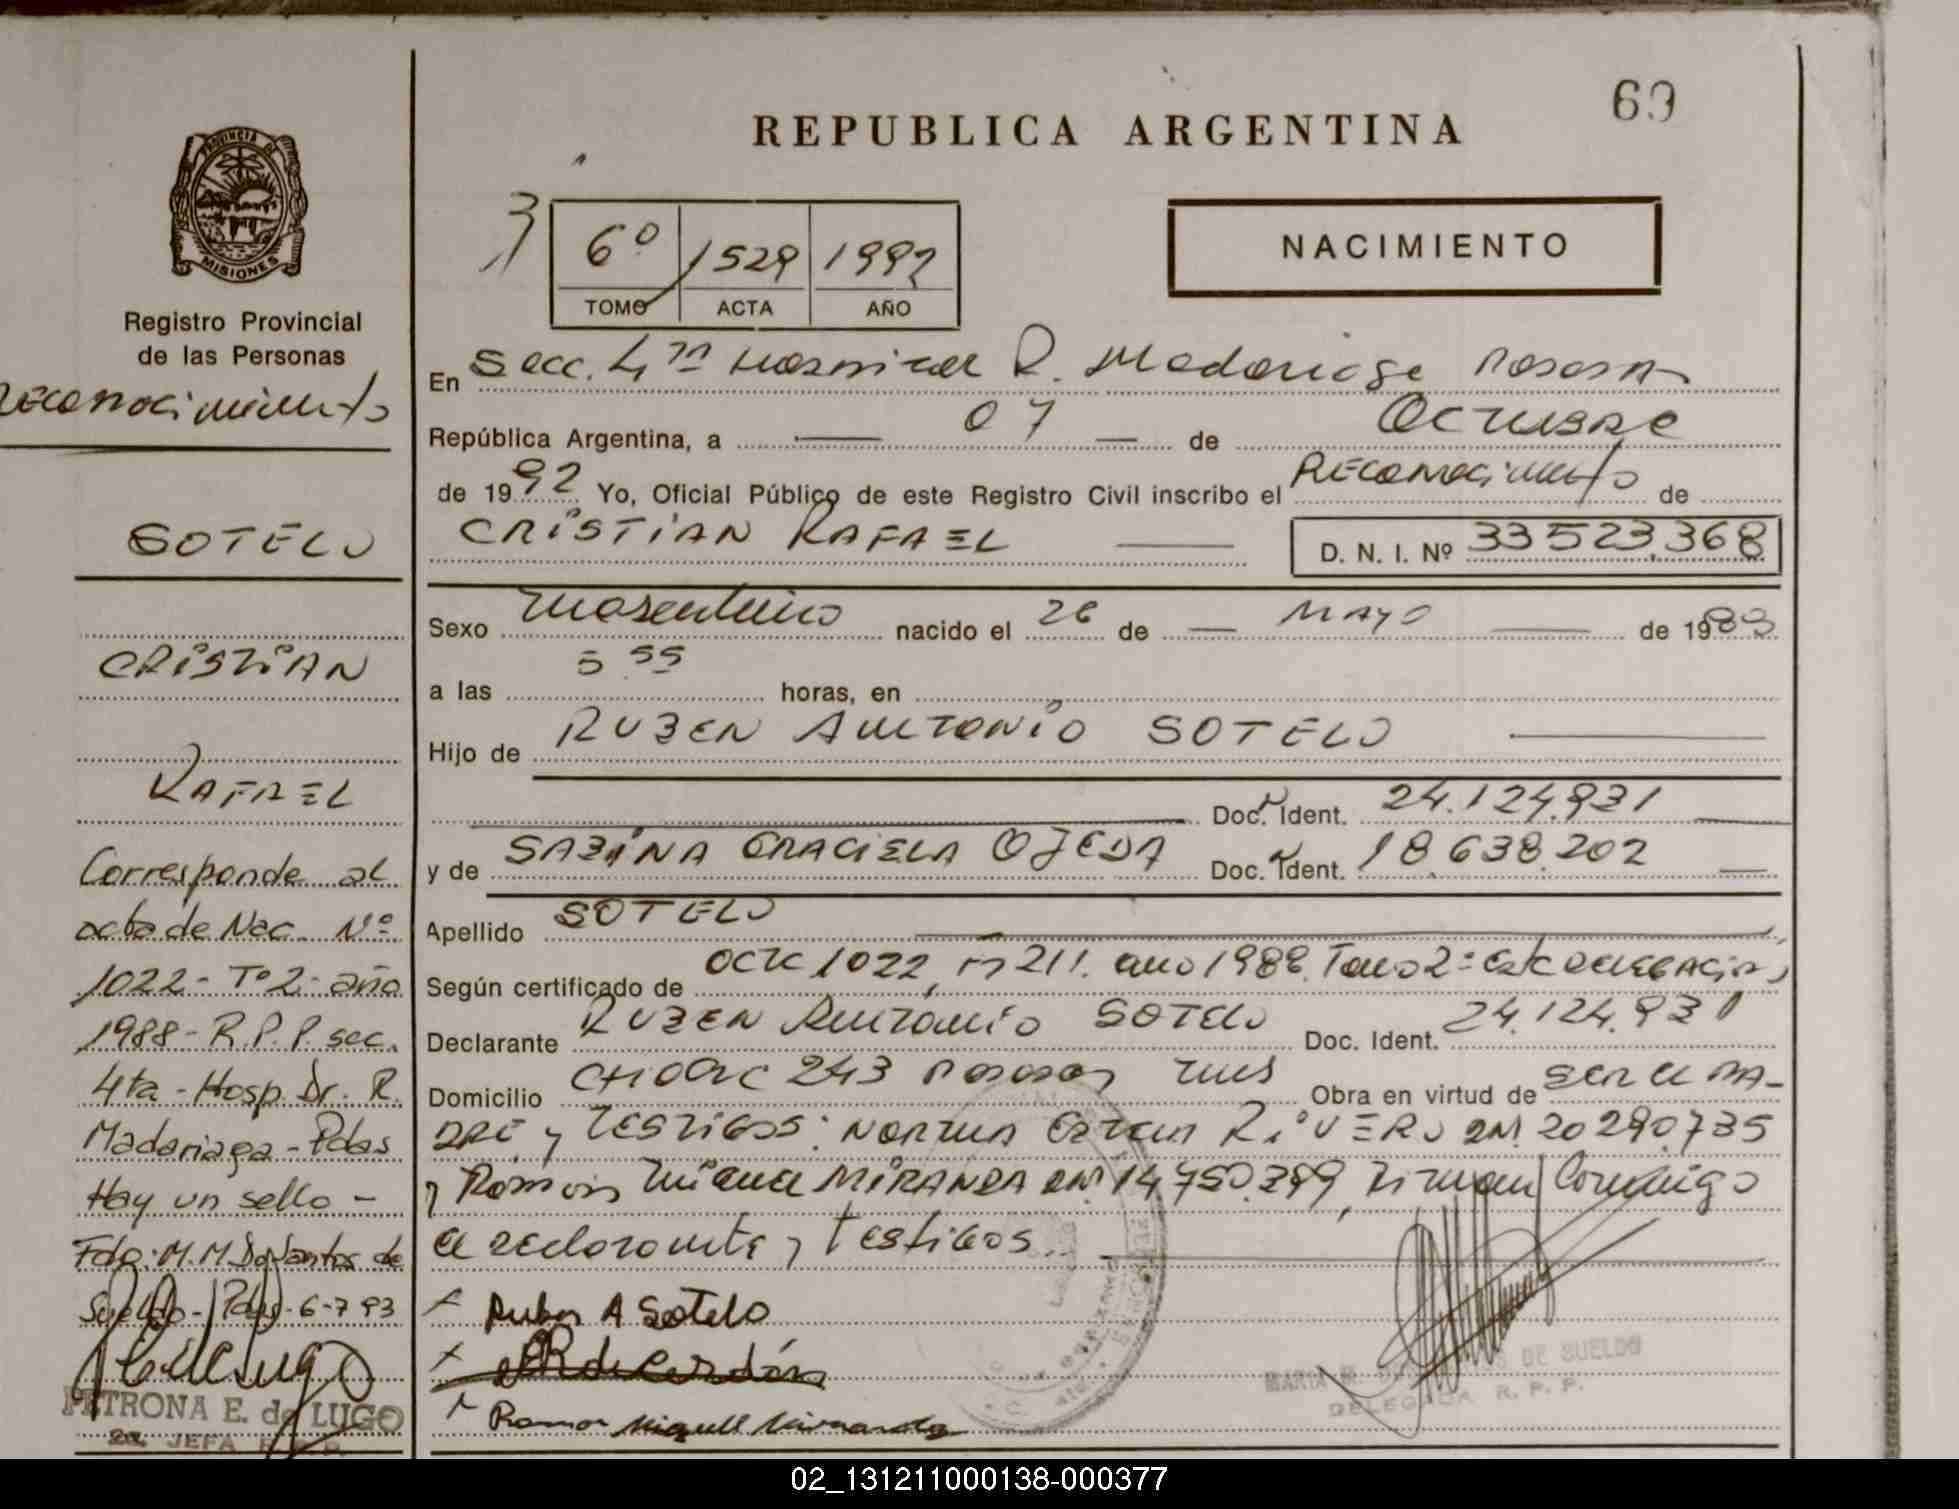 69
REPUBLICA ARGENTINA
PROVINCIA DE
MISIONES
Registro Provincial
de las Personas
Reconocimiento
SOTELO
CRISTIAN
RAFAEL
Corresponde al
acta de Nac. Nº
1022 - Tº 2 - año
1988 - R.P.P. sec.
4ta - Hosp. Dr. R.
Madariaga - Pdas
Hay un sello -
Fdo: M.M. Dos Santos de
Sueldo - Pdas - 6-7 93
PETRONA E. de LUGO
2a. JEFA R.P.P.
6º 1529 1992
TOMO ACTA AÑO
NACIMIENTO
En Secc. 4ta Hospital R. Madariaga Posadas
República Argentina, a 07 de Octubre
de 1992 Yo, Oficial Público de este Registro Civil inscribo el Reconocimiento de
CRISTIAN RAFAEL D. N. I. Nº 33523.368
Sexo Masculino nacido el 26 de MAYO de 198
a las 5 55 horas, en
Hijo de RUBEN ANTONIO SOTELO
Doc. Ident. 24.124.931
y de SABINA GRACIELA OJEDA Doc. Ident. 18.638.202
Apellido SOTELO
Según certificado de acta 1022, año 1988 Tomo 2º
Declarante RUBEN ANTONIO SOTELO Doc. Ident. 24.124.931
Domicilio 243 Posadas Obra en virtud de ser el PA-
DRE y TESTIGOS: NORMA RIVERO 20290.735
y Ramón Miguel MIRANDA 14 750.399, Firman Conmigo
el declarante y testigos.
Ruben A Sotelo
Ramon Miguel Miranda
MARIA M. DOS SANTOS DE SUELDO
DELEGADA R. P. P.
02_131211000138-000377